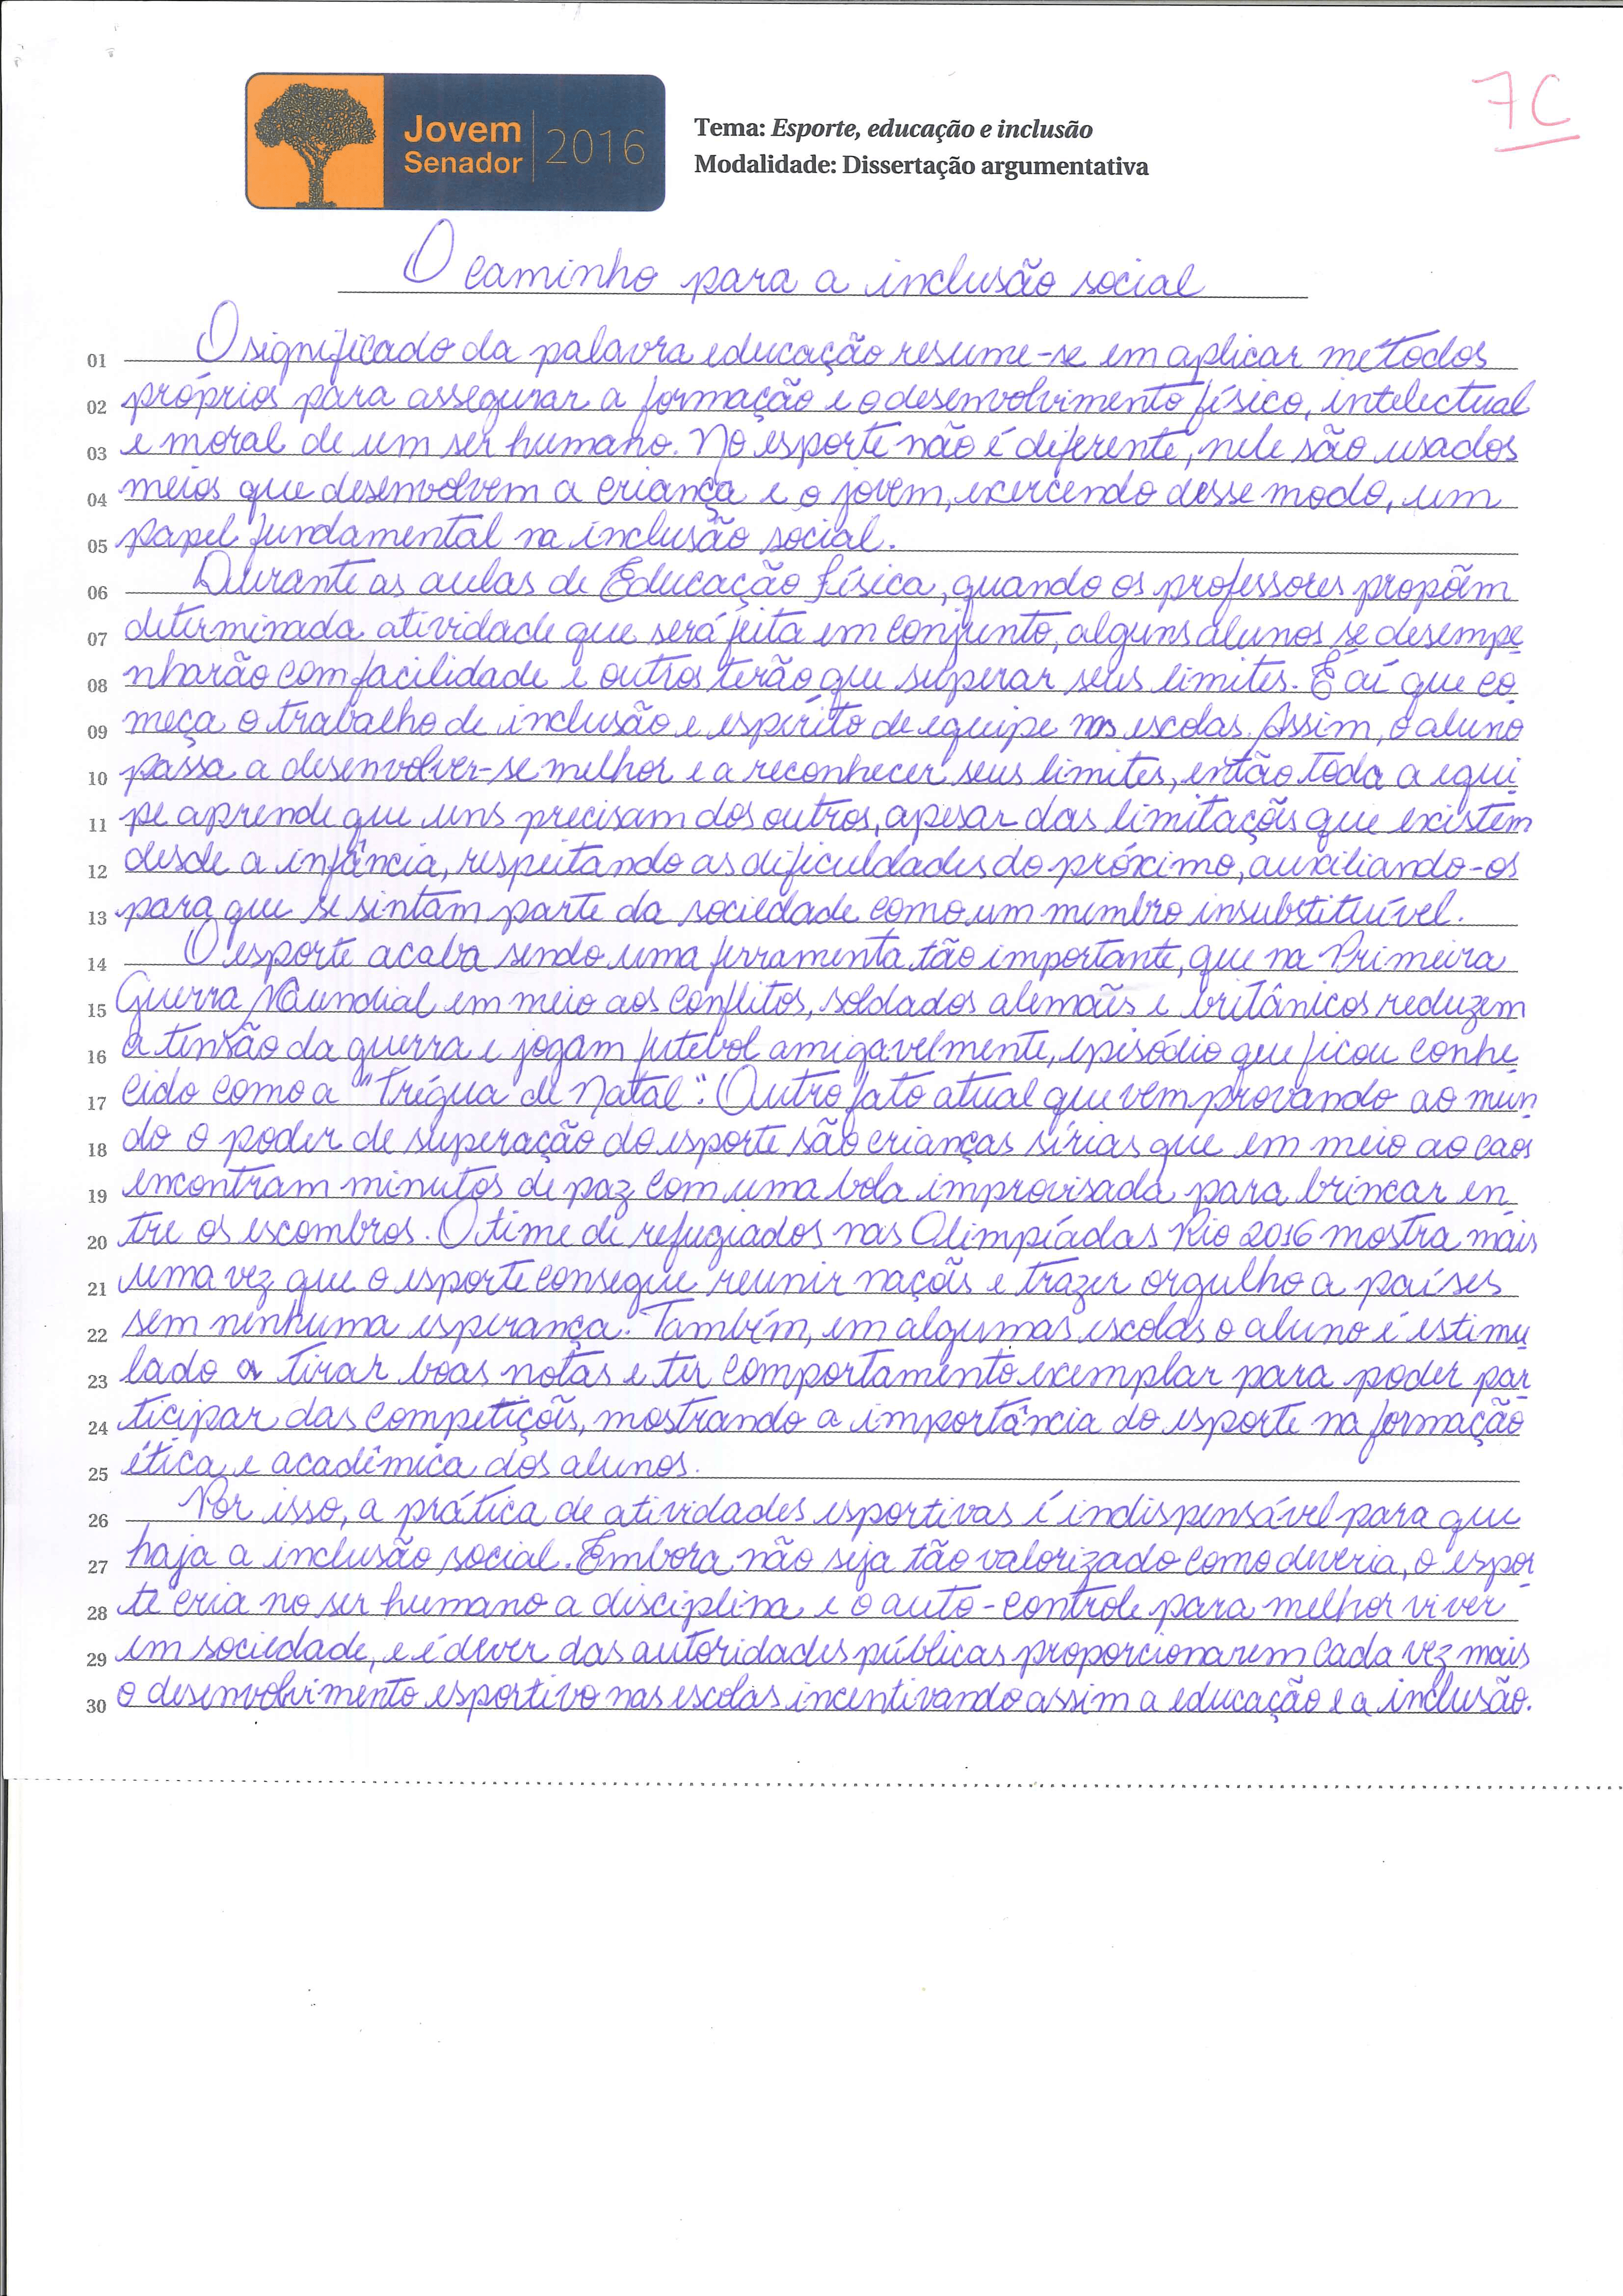 7C
Jovem
Senador
2016
Tema: Esporte, educação e inclusão
Modalidade: Dissertação argumentativa
O caminho para a inclusão social
01 O significado da palavra educação resume-se em aplicar métodos
02 próprios para assegurar a formação e o desenvolvimento físico, intelectual
03 e moral de um ser humano. No esporte não é diferente, nele são usados
04 meios que desenvolvem a criança e o jovem, exercendo desse modo, um
05 papel fundamental na inclusão social.
06 Durante as aulas de Educação física, quando os professores propõem
07 determinada atividade que será feita em conjunto, alguns alunos se desempe
08 nharão com facilidade e outros terão que superar seus limites. É aí que co
09 meça o trabalho de inclusão e espírito de equipe nas escolas. Assim, o aluno
10 passa a desenvolver-se melhor e a reconhecer seus limites, então toda a equi
11 pe aprende que uns precisam dos outros, apesar das limitações que existem
12 desde a infância, respeitando as dificuldades do próximo, auxiliando-os
13 para que se sintam parte da sociedade como um membro insubstituível.
14 O esporte acaba sendo uma ferramenta tão importante, que na Primeira
15 Guerra Mundial em meio aos conflitos, soldados alemães e britânicos reduzem
16 a tensão da guerra e jogam futebol amigavelmente, episódio que ficou conhe
17 cido como a "Trégua de Natal". Outro fato atual que vem provando ao mun
18 do o poder de superação do esporte são crianças sírias que em meio ao caos
19 encontram minutos de paz com uma bola improvisada para brincar en
20 tre os escombros. O time de refugiados nas Olimpíadas Rio 2016 mostra mais
21 uma vez que o esporte consegue reunir nações e trazer orgulho a países
22 sem nenhuma esperança. Também, em algumas escolas o aluno é estimu
23 lado a tirar boas notas e ter comportamento exemplar para poder par
24 ticipar das competições, mostrando a importância do esporte na formação
25 ética e acadêmica dos alunos.
26 Por isso, a prática de atividades esportivas é indispensável para que
27 haja a inclusão social. Embora não seja tão valorizado como deveria, o espor
28 te cria no ser humano a disciplina e o auto-controle para melhor viver
29 em sociedade, e é dever das autoridades públicas proporcionarem cada vez mais
30 o desenvolvimento esportivo nas escolas incentivando assim a educação e a inclusão.